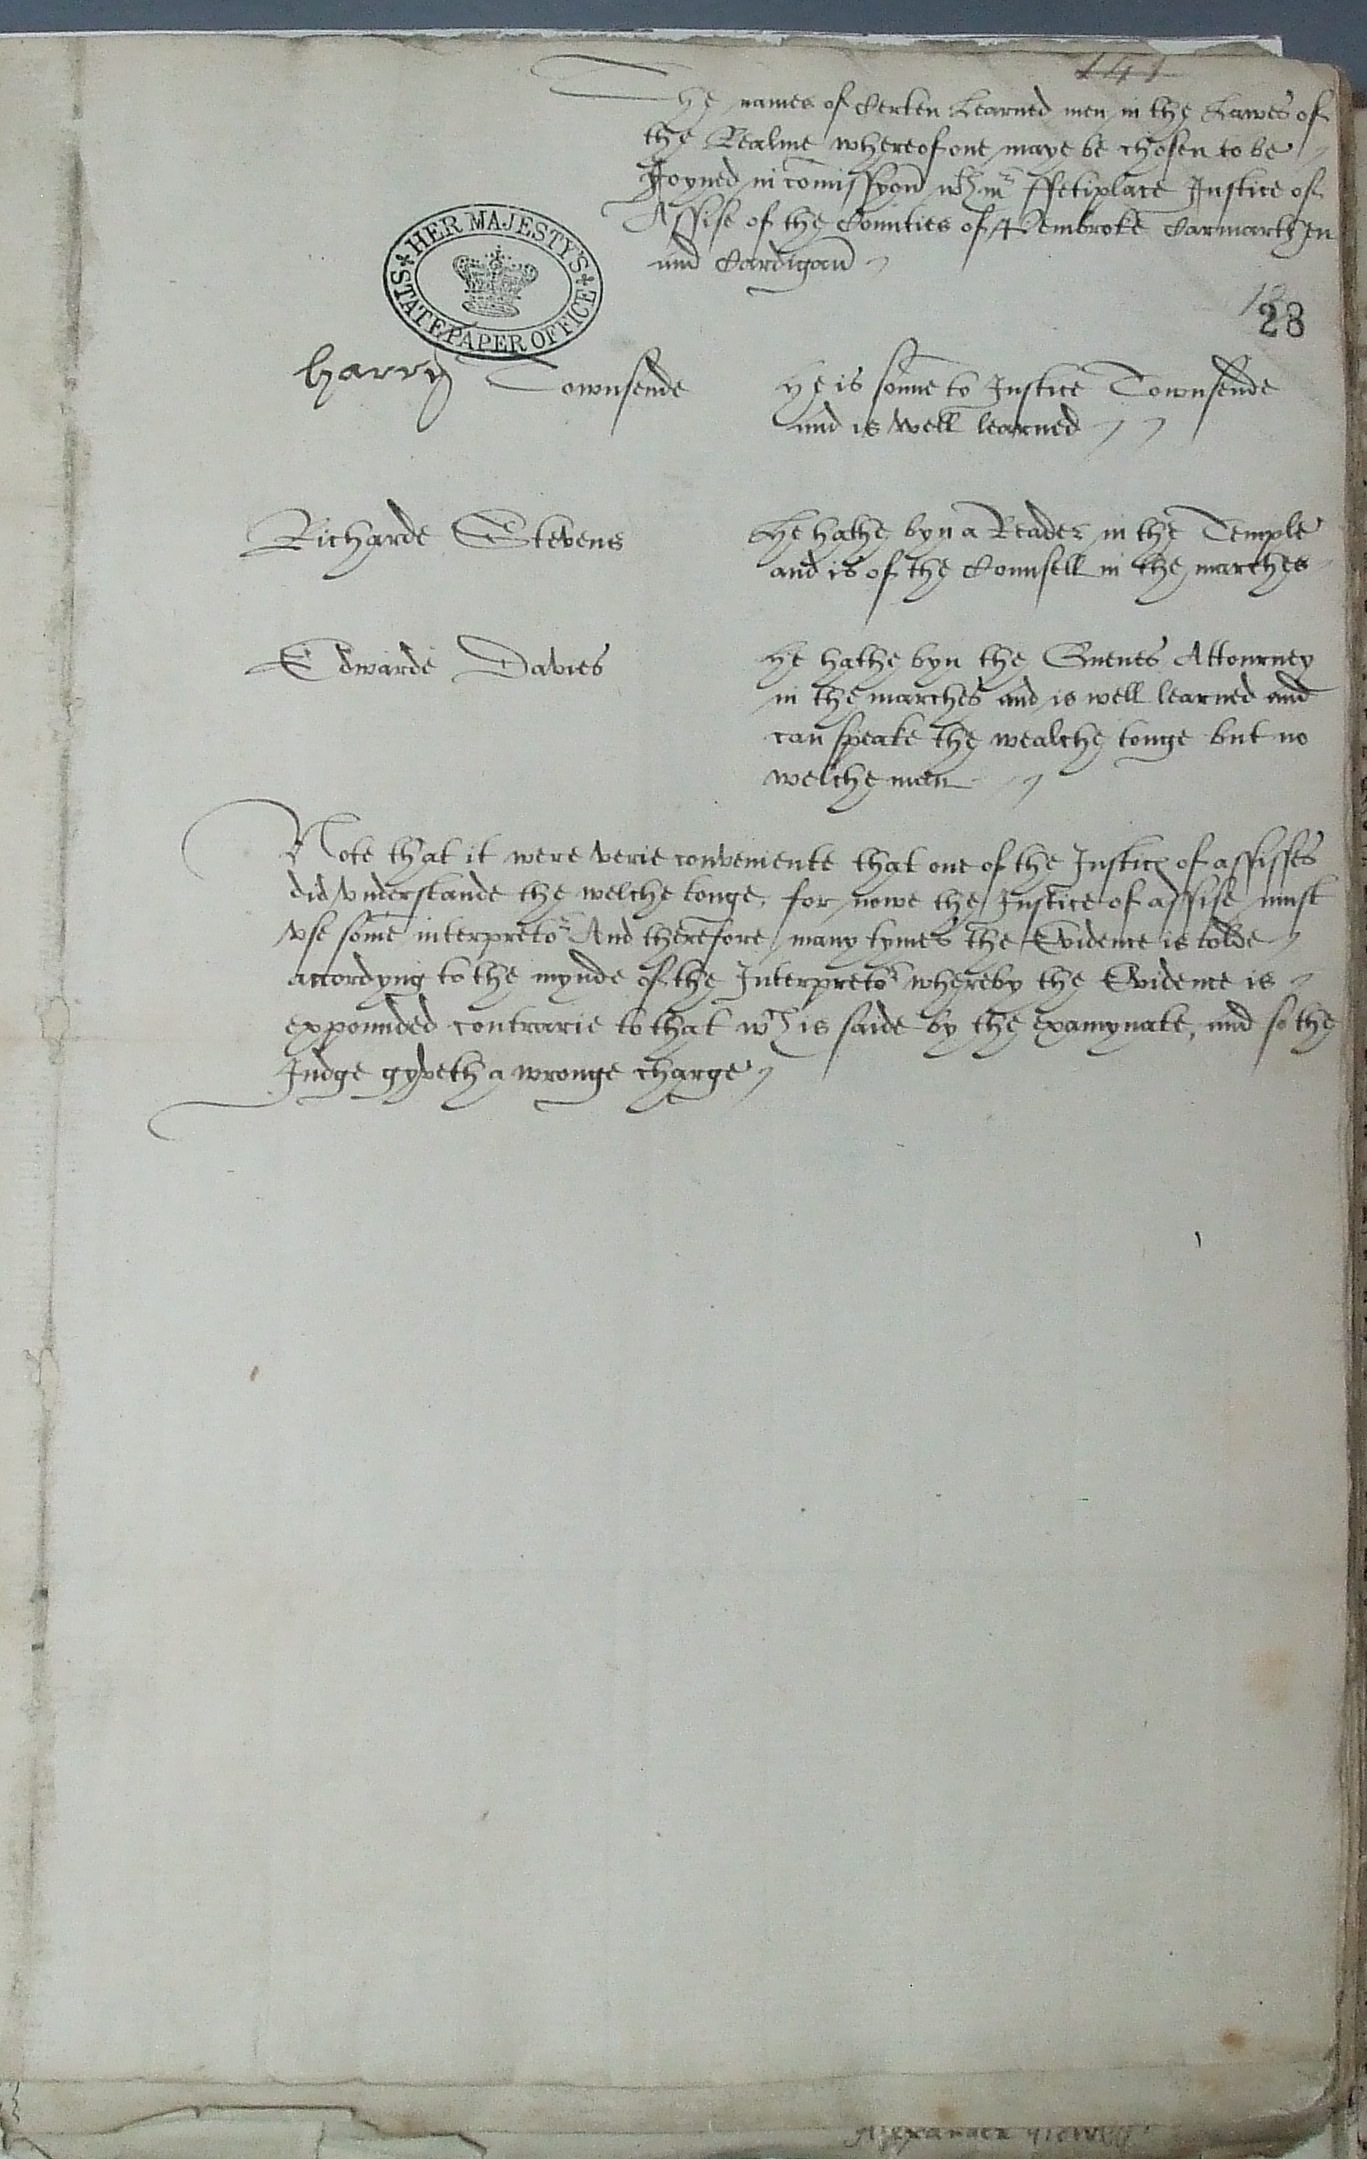 141
The names of Certen Learned men in the Lawes of
the Realme whereof one maye be chosen to be
Joyned in comissyon wth mr ffetiplace Justice of
Assise of the Counties of Pembroke Carmarthen
and Cardigan
28
HER MAJESTY'S STATE PAPER OFFICE
harry Townsende He is sonne to Justice Townsende
and is well learned
Richarde Stevens He hathe byn a Reader in the Temple
and is of the Counsell in the marches
Edwarde Davies He hathe byn the Quenes Attourney
in the marches and is well learned and
can speake the wealche tonge but no
welche man
Note that it were verie conveniente that one of the Justices of assisses
did vnderstande the welche tonge, for nowe the Justice of assise must
vse some interpretor And therefore many tymes the Evidence is tolde
accordyng to the mynde of the Interpretor whereby the Evidence is
expounded contrarie to that wch is saide by the examynate, and so the
Judge gyveth a wronge charge